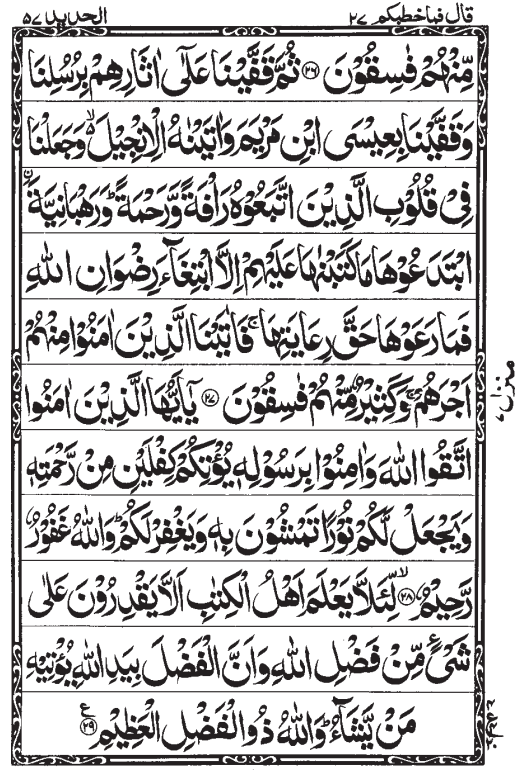 قال فما خطبكم ۲۷
الحديد ۵۷
مِّنْهُمْ فٰسِقُوْنَ ﴿۲۶﴾ ثُمَّ قَفَّيْنَا عَلٰٓى اٰثَارِهِمْ بِرُسُلِنَا
وَقَفَّيْنَا بِعِيْسَى ابْنِ مَرْيَمَ وَاٰتَيْنٰهُ الْاِنْجِيْلَ ۙ وَجَعَلْنَا
فِيْ قُلُوْبِ الَّذِيْنَ اتَّبَعُوْهُ رَاْفَةً وَّرَحْمَةً ؕ وَرَهْبَانِيَّةَ ۨ
ابْتَدَعُوْهَا مَا كَتَبْنٰهَا عَلَيْهِمْ اِلَّا ابْتِغَآءَ رِضْوَانِ اللّٰهِ
فَمَا رَعَوْهَا حَقَّ رِعَايَتِهَا ۚ فَاٰتَيْنَا الَّذِيْنَ اٰمَنُوْا مِنْهُمْ
اَجْرَهُمْ ۚ وَكَثِيْرٌ مِّنْهُمْ فٰسِقُوْنَ ﴿۲۷﴾ يٰٓاَيُّهَا الَّذِيْنَ اٰمَنُوا
اتَّقُوا اللّٰهَ وَاٰمِنُوْا بِرَسُوْلِهٖ يُؤْتِكُمْ كِفْلَيْنِ مِنْ رَّحْمَتِهٖ
وَيَجْعَلْ لَّكُمْ نُوْرًا تَمْشُوْنَ بِهٖ وَيَغْفِرْ لَكُمْ ؕ وَاللّٰهُ غَفُوْرٌ
رَّحِيْمٌ ﴿۲۸﴾ ۙ لِّئَلَّا يَعْلَمَ اَهْلُ الْكِتٰبِ اَلَّا يَقْدِرُوْنَ عَلٰى
شَيْءٍ مِّنْ فَضْلِ اللّٰهِ وَاَنَّ الْفَضْلَ بِيَدِ اللّٰهِ يُؤْتِيْهِ
مَنْ يَّشَآءُ ؕ وَاللّٰهُ ذُو الْفَضْلِ الْعَظِيْمِ ﴿۲۹﴾ ع
منزل ۷